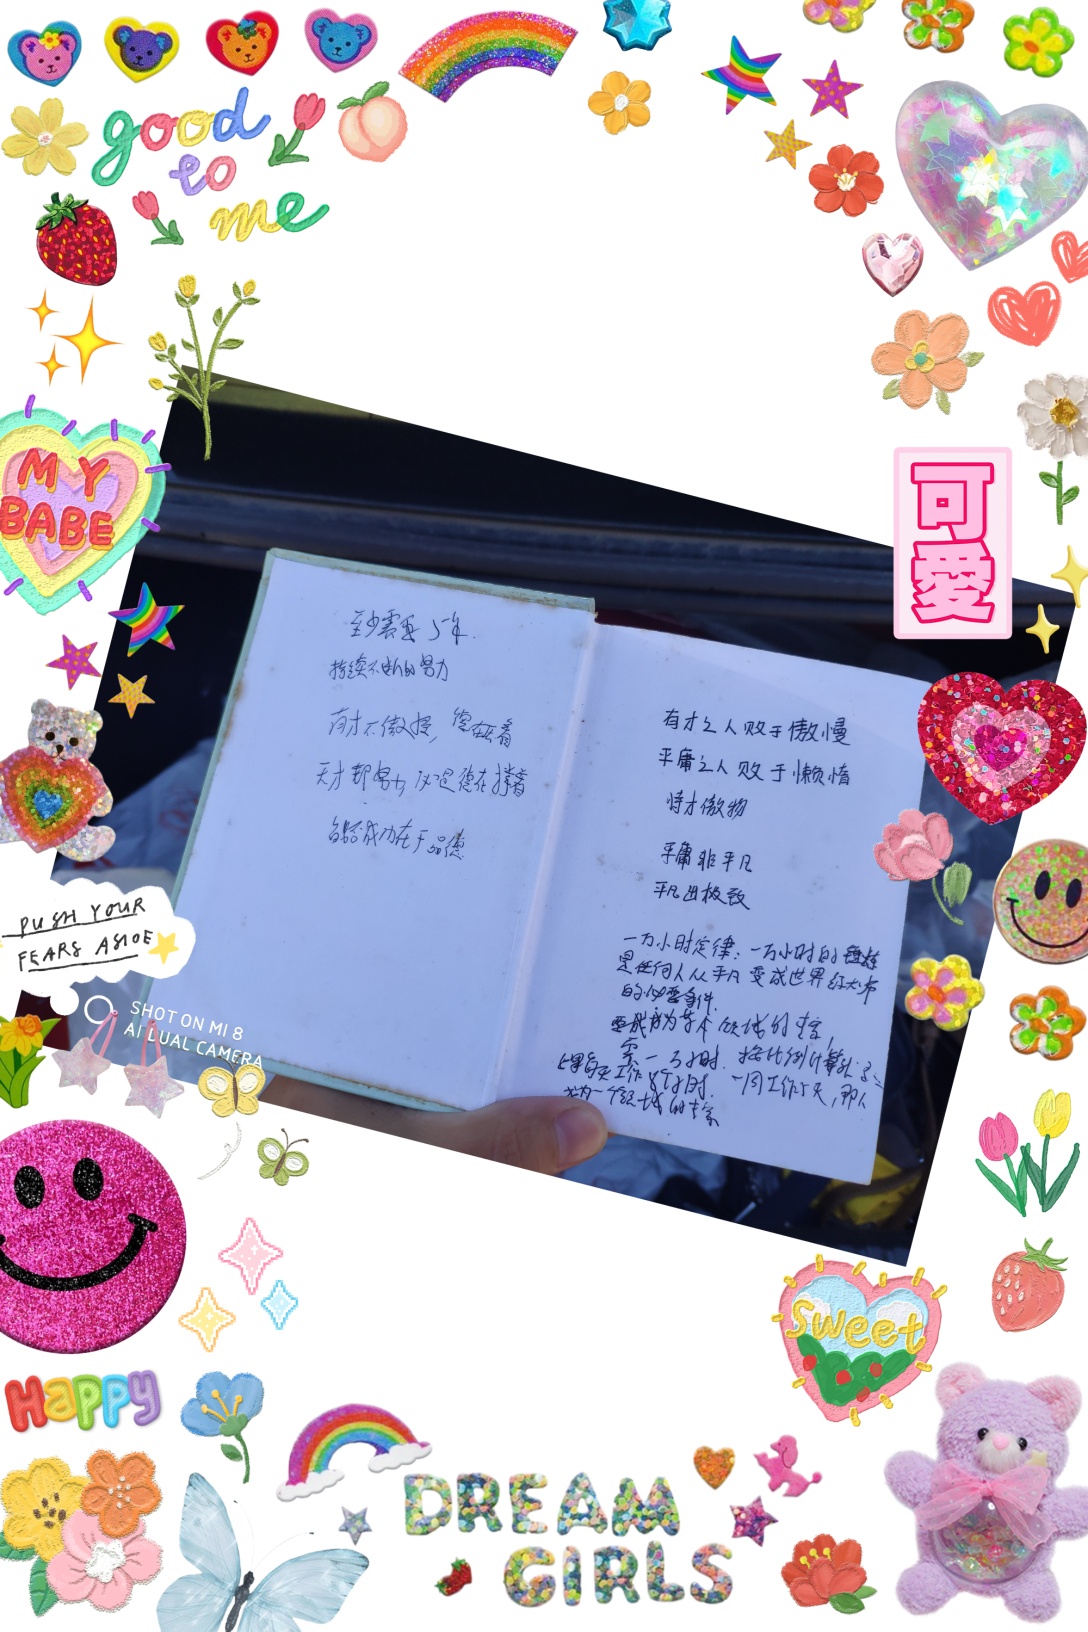 good
to
me
MY
BABE
可
愛
至少需要5年.
持续不断的努力
有才不傲慢,
天才都努力,
成功在于品德
有才之人败于傲慢
平庸之人败于懒惰
恃才傲物
平庸非平凡
平凡出极致
一万小时定律:一万小时的锤炼
是任何人从平凡变成世界级大师
的必要条件.
要成为某个领域的专家,
需一万小时.按比例计算就是:
如果每天工作八个小时.一周工作5天,那么
成为一个领域的专家
PUSH YOUR
FEARS ASIDE
SHOT ON MI 8
AI DUAL CAMERA
Sweet
Happy
DREAM
GIRLS